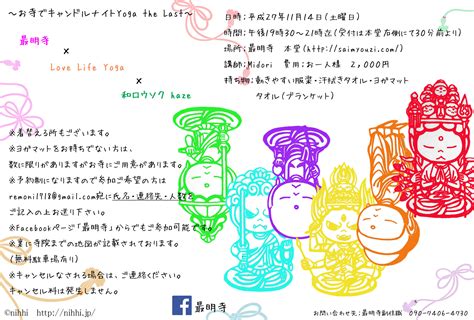 ～お寺でキャンドルナイトYoga the Last～
最明寺
×
Love Life Yoga
×
和ロウソク haze
日時:平成27年11月14日(土曜日)
時間:午後19時30～21時迄(受付は本堂右側にて30分前より)
場所:最明寺 本堂(http://saimyouzi.com/)
講師:Midori 費用:お一人様 2,000円
持ち物:動きやすい服装・汗拭きタオル・ヨガマット
タオル(ブランケット)
※着替える所もございます。
※ヨガマットをお持ちでない方は、
数に限りがありますがお寺にご用意があります。
※予約制になりますので参加ご希望の方は
remonil718@gmail.com宛に氏名・連絡先・人数を
ご記入の上お送り下さい。
※Facebookページ「最明寺」からでもご参加可能です。
※裏に寺院までの地図が記載されております。
(無料駐車場有り)
※キャンセルなされる場合は、ご連絡ください。
キャンセル料は発生しません。
©nihhi http://nihhi.jp/
f 最明寺
お問い合わせ先:最明寺副住職 090-7406-4730